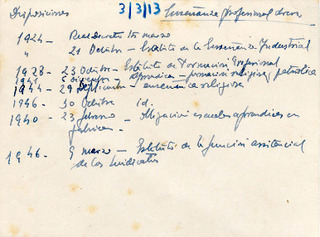 Disposiciones 3/3/13 Enseñanza profesional
1924 - Real Decreto 15 marzo
" 31 Octubre - Estatuto de la Enseñanza Industrial
1928 - 23 Octubre - Estatuto de Formación Profesional
1941 6 - aprendices - formación religiosa y patriótica
1944 - 29 Septiembre - enseñanza religiosa
1946 - 30 Octubre id.
1940 - 23 febrero - Obligación escuelas aprendices en
fábricas -
1946 - 9 marzo - Estatuto de la función asistencial
de los Sindicatos